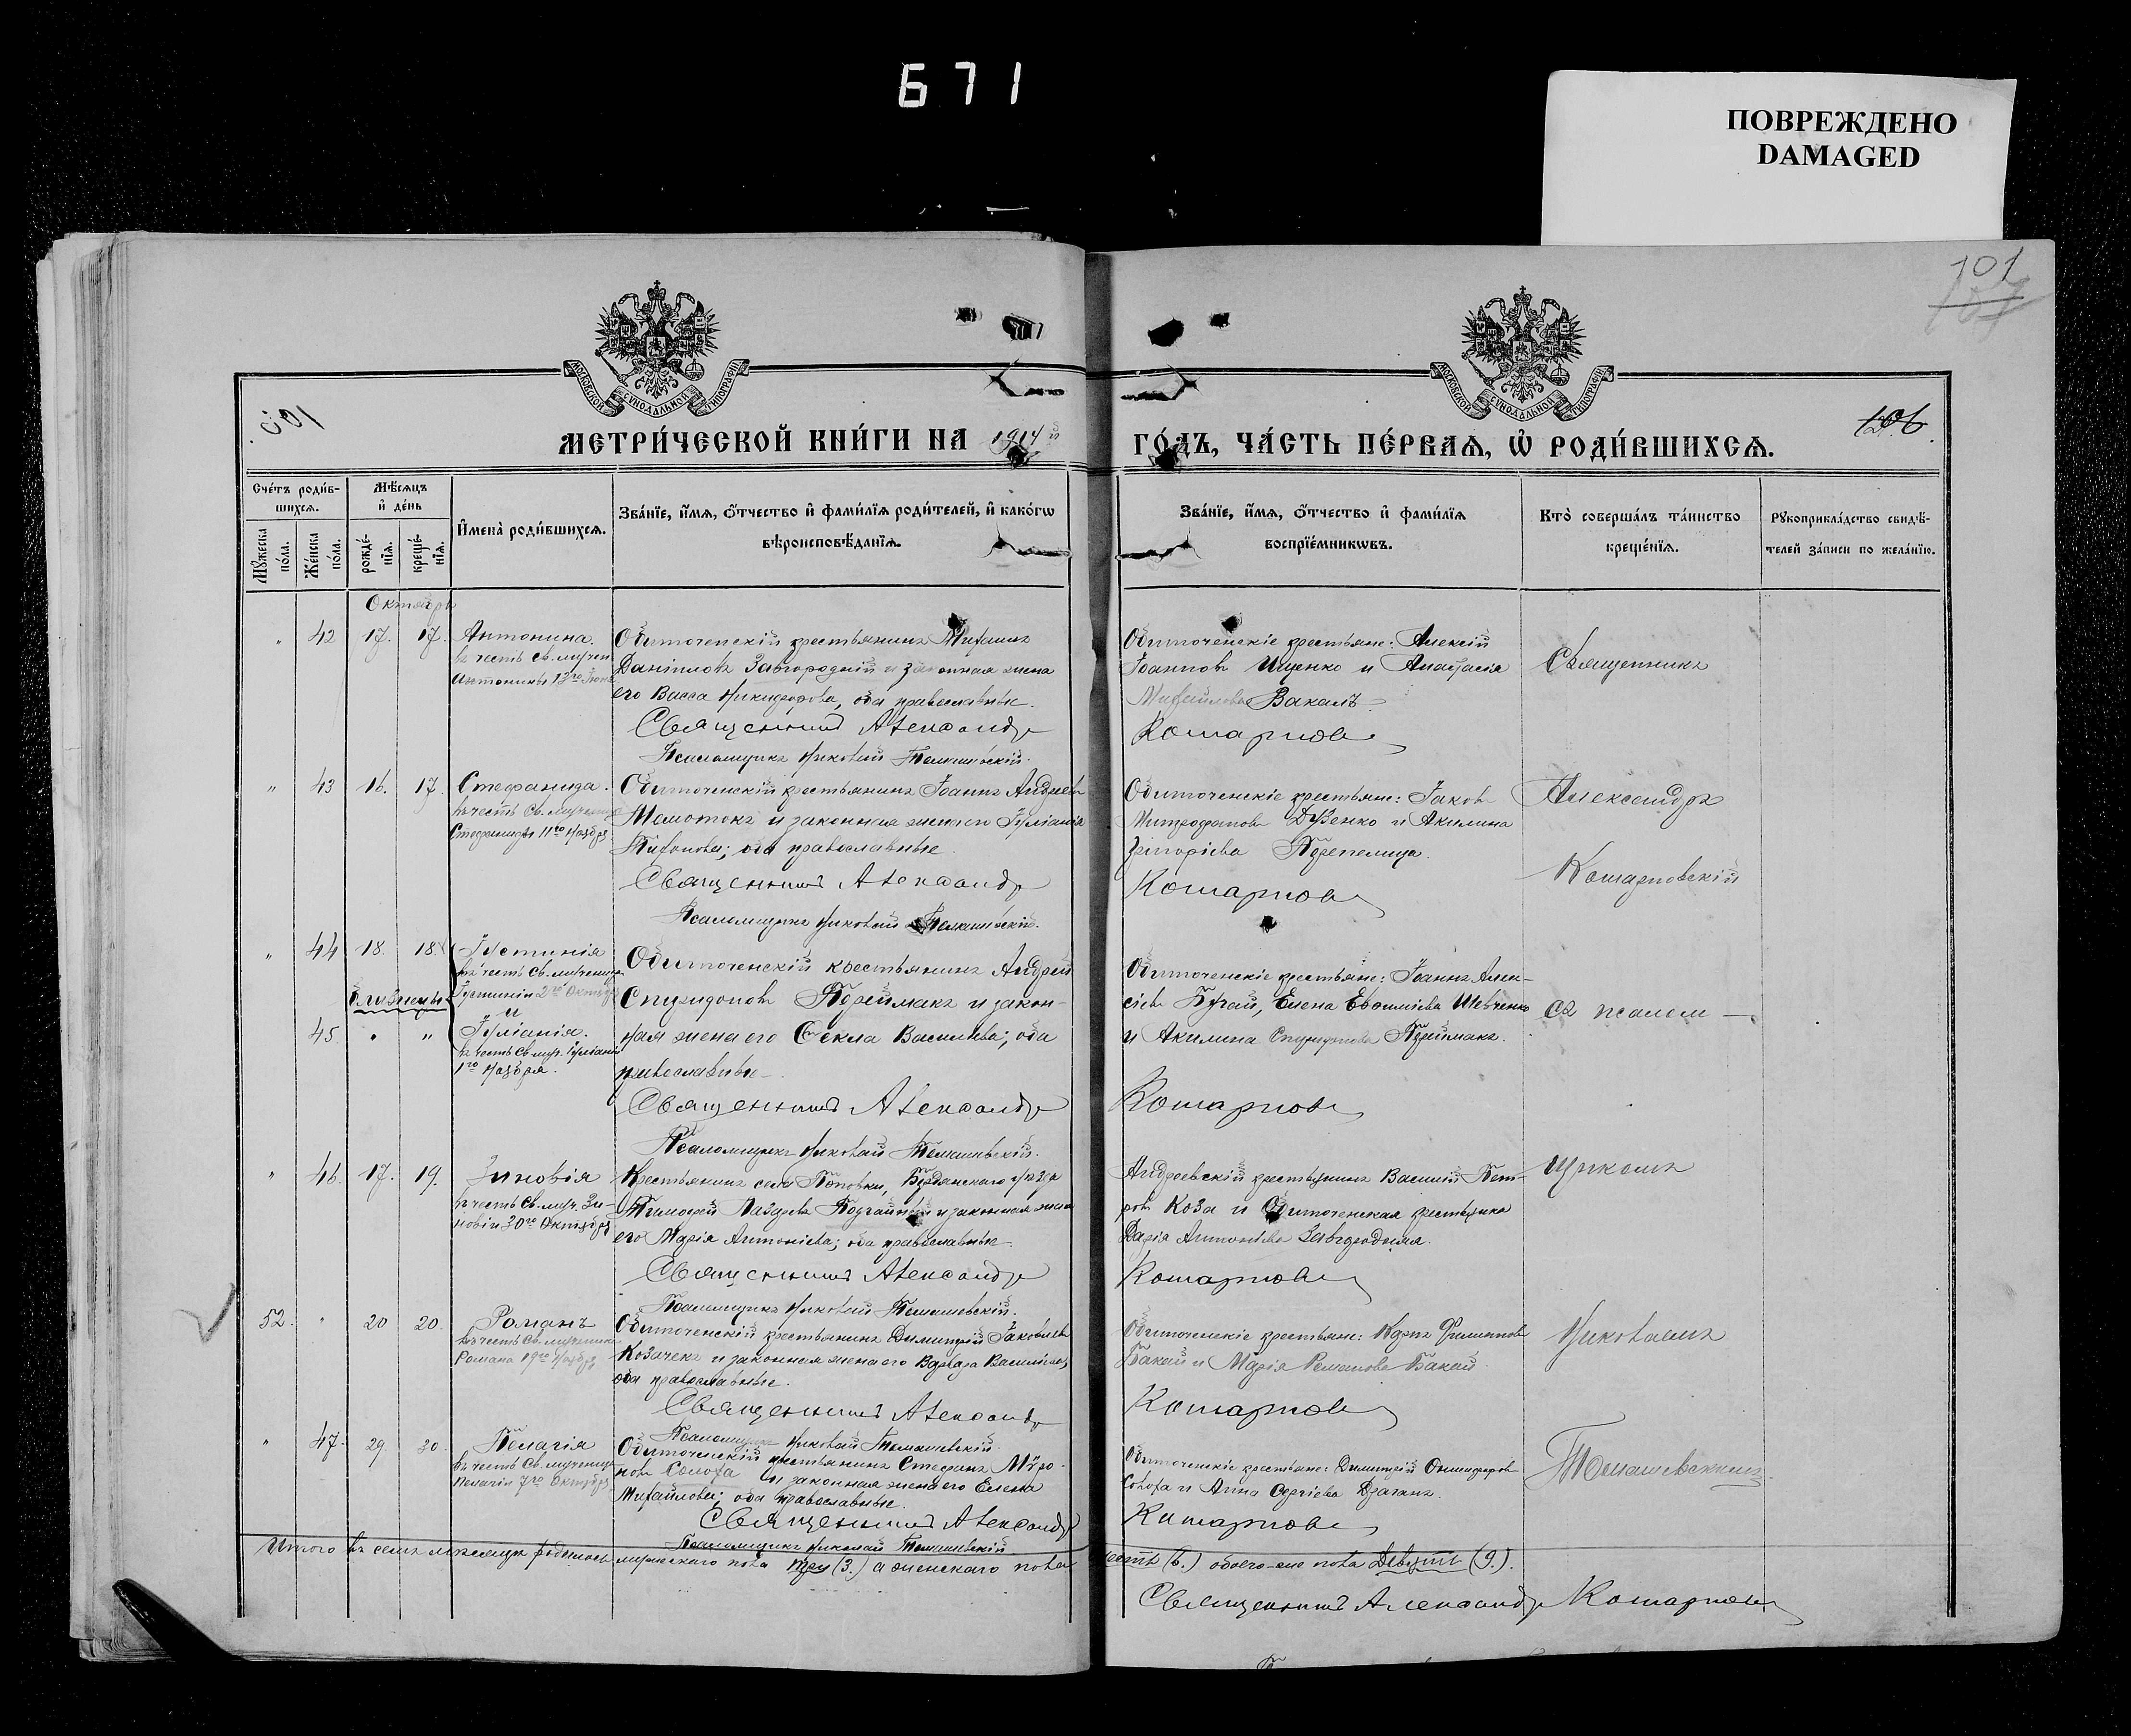 671
ПОВРЕЖДЕНО
DAMAGED
101
МОСКОВСКОЙ СѴНОДАЛЬНОЙ ТИПОГРАФІИ
МОСКОВСКОЙ СѴНОДАЛЬНОЙ ТИПОГРАФІИ
МЕТРИ́ЧЕСКОЙ КНИ́ГИ НА 1914 й
ГО́ДЪ, ЧА́СТЬ ПЕ́РВАѦ, Ѡ҆ РОДИ́ВШИХСѦ.
Сче́тъ роди́в-
шихсѧ.
Мѣ́сѧцъ
и҆ де́нь
Мꙋ́жеска по́ла.
Же́нска по́ла.
рожде́-
нїѧ.
креще́-
нїѧ.
И҆мена̀ роди́вшихсѧ.
Зва́нїе, и҆́мѧ, о҆́тчество и҆ фамѝлїѧ роди́телей, и҆ како́гѡ
вѣроисповѣ́данїѧ.
Зва́нїе, и҆́мѧ, о҆́тчество и҆ фамѝлїѧ
воспрїе́мникѡвъ.
Кто̀ соверша́лъ та́инство
креще́нїѧ.
Рꙋкоприкла́дство свидѣ́-
телей за́писи по жела́нїю.
Октябрь
" 42 17. 17. Антонина.
въ честь св. мучен.
Антонины 13го Іюня
Обиточенскій крестьянинъ Михаилъ
Даніиловъ Завгородній и законная жена
его Васса Никифорова, оба православные.
Священникъ Александръ
Псаломщикъ Николай Томашевскій.
Обиточенскіе крестьяне: Алексій
Іоанновъ Ищенко и Анастасія
Михайлова Вакалъ.
Кошарнов
Священникъ
" 43 16. 17. Стефанида.
въ честь св. мучениц.
Стефаниды 11го Ноябр.
Обиточенскій крестьянинъ Іоаннъ Андреевъ
и законная жена его Іуліанія
оба православные.
Священникъ Александръ
Псаломщикъ Николай Томашевскій.
Обиточенскіе крестьяне: Іаковъ
Митрофановъ Дузенко и Акилина
Григоріева Перепелица.
Кошарнов
Александръ
Кошарновскій
" 44 18. 18. Іустинія
въ честь св. мученицы
Іустиніи 2го Октября
близнецы
и
45. " " Іуліанія.
въ честь св. муч. Іуліаніи
1го Ноября.
Обиточенскій крестьянинъ Андрей
Спиридоновъ Приймакъ и закон-
ная жена его Ѳекла Васильева; оба
православные.
Священникъ Александръ
Псаломщикъ Николай Томашевскій.
Обиточенскіе крестьяне: Іоаннъ Алек-
сіевъ Бугай, Елена Евфиміева Шевченко
и Акилина Спиридонова Приймакъ.
Кошарнов
съ псалом-
" 46. 17. 19. Зиновія
въ честь св. муч. Зи-
новіи 30го Октября
Крестьянинъ села Поповки, Бердянскаго уѣзда
Тимофей Лазаревъ и законная жена
его Марія Антоніева; оба православные.
Священникъ Александръ
Псаломщикъ Николай Томашевскій.
Андреевскій крестьянинъ Василій Пет-
ровъ Коза и Обиточенская крестьянка
Дарія Антоніева Завгородняя.
Кошарнов
щикомъ
52. " 20 20. Романъ
въ честь св. мученика
Романа 19го Ноября
Обиточенскій крестьянинъ Димитрій Іаковлевъ
Козаченк и законная жена его Варвара Васильева,
оба православные.
Священникъ Александръ
Псаломщикъ Николай Томашевскій.
Обиточенскіе крестьяне: Карпъ Филиппов
Бакай и Марія Романова Бакай.
Кошарнов
Николаемъ
" 47. 29. 30. Пелагія
въ честь св. мучениц.
Пелагіи 7го Октября
Обиточенскій крестьянинъ Стефанъ Миро-
новъ Солоха и законная жена его Елена
Михайлова; оба православные.
Священникъ Александръ
Псаломщикъ Николай Томашевскій
Обиточенскіе крестьяне: Димитрій
Солоха и Анна Сергіева Драганъ.
Кошарнов
Томашевскимъ.
Итого въ семъ мѣсяцѣ родилось мужескаго пола три (3.) а женскаго пола шесть (6.) обоего-же пола девять (9.).
Священникъ Александръ Кошарнов